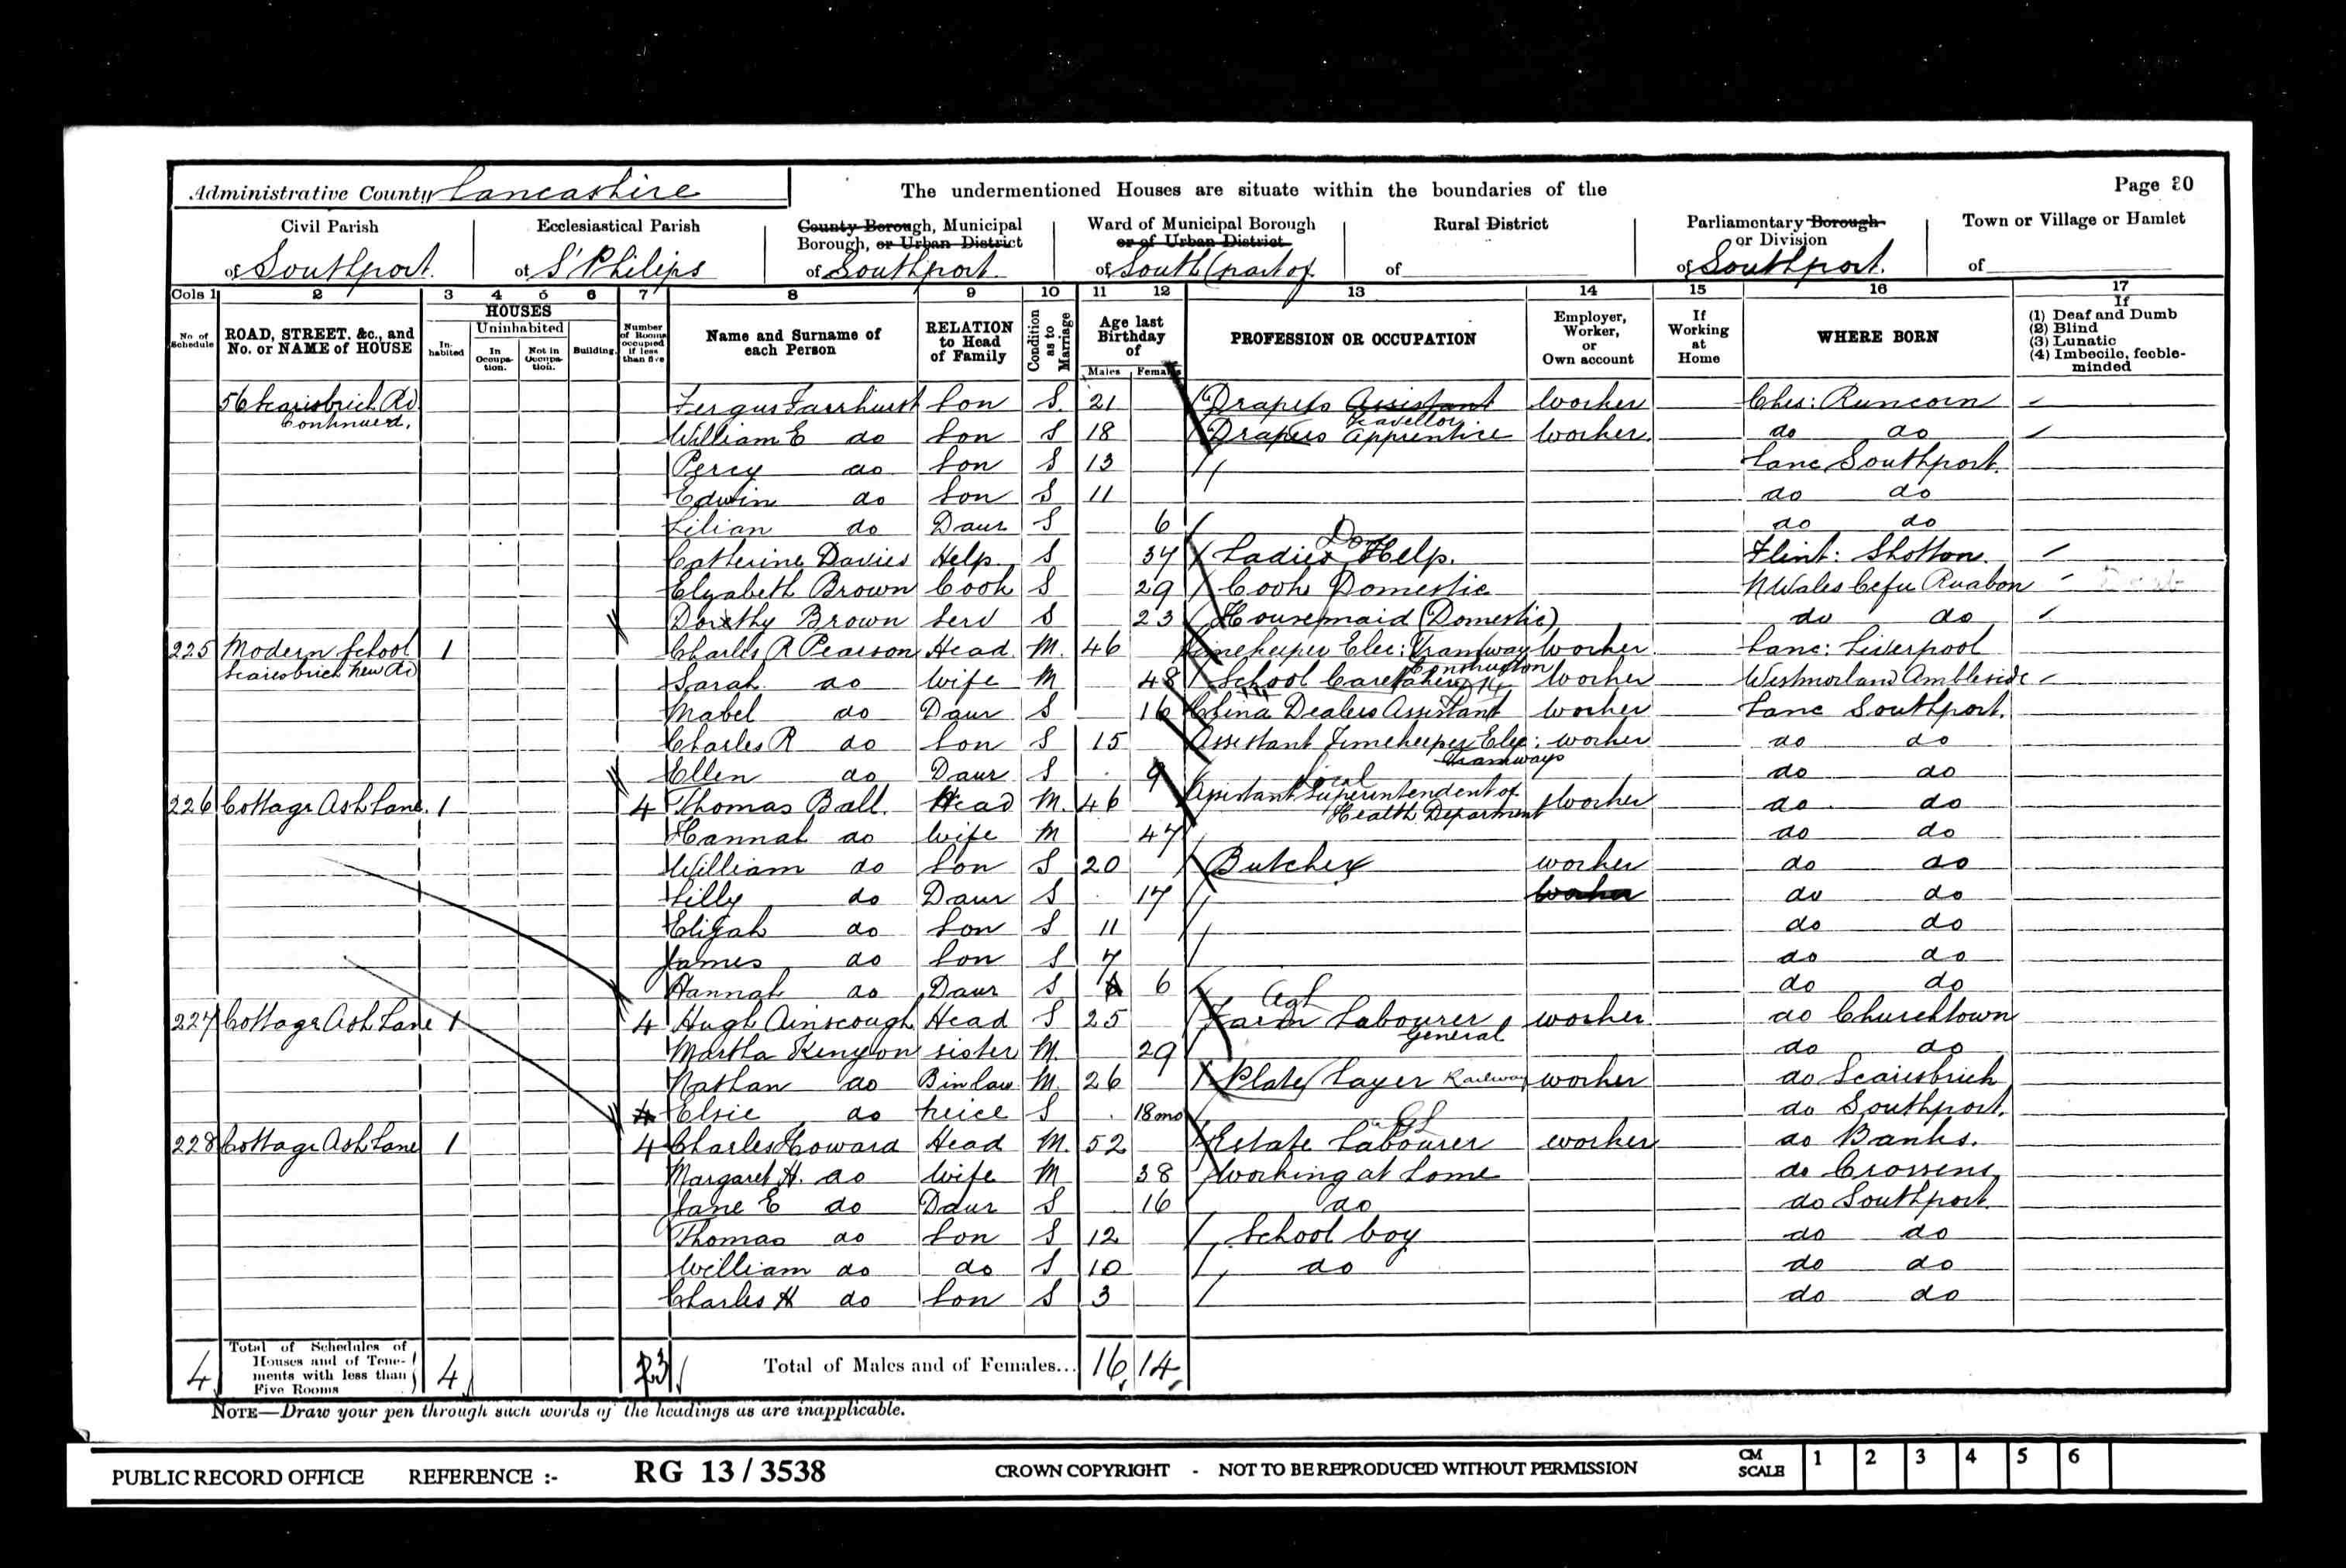 Administrative County Lancashire The undermentioned Houses are situate within the boundaries of the Page 20
Civil Parish Ecclesiastical Parish County Borough, Municipal Borough, or Urban District Ward of Municipal Borough or of Urban District Rural District Parliamentary Borough or Division Town or Village or Hamlet
of Southport. of St Philips of Southport. of South (part of) of of Southport. of
Cols 1 2 3 4 5 6 7 8 9 10 11 12 13 14 15 16 17
No of Schedule ROAD, STREET, &c., and No. or NAME of HOUSE HOUSES Inhabited Uninhabited In Occupation. Not in Occupation. Building. Number of Rooms occupied if less than five Name and Surname of each Person RELATION to Head of Family Condition as to Marriage Age last Birthday of Males Females PROFESSION OR OCCUPATION Employer, Worker, or Own account If Working at Home WHERE BORN If (1) Deaf and Dumb (2) Blind (3) Lunatic (4) Imbecile, feeble-minded
56 Scarisbrick Rd Continued. Fergus Fairhurst Son S. 21 Drapers Assistant Traveller Worker Ches: Runcorn
William E do Son S 18 Drapers Apprentice Worker. do do
Percy do Son S 13 Lanc Southport.
Edwin do Son S 11 do do
Lilian do Daur S 6 do do
Catherine Davies Help S 37 Ladies Help. Do Flint: Shotton.
Elizabeth Brown Cook S 29 Cook Domestic N Wales Cefn Ruabon
Dorothy Brown Serv S 23 Housemaid (Domestic) do do
225 Modern School Scarisbrick New Rd 1 Charles R Pearson Head M. 46 Timekeeper Elec: Tramway Construction Worker Lanc: Liverpool
Sarah do Wife M 48 School Caretaker Worker Westmorland Ambleside
Mabel do Daur S 16 China Dealers Assistant Worker Lanc Southport.
Charles R do Son S 15 Assistant Timekeeper Elec: Tramways worker do do
Ellen do Daur S 9 do do
226 Cottage Ash Lane. 1 4 Thomas Ball. Head M. 46 Assistant Superintendent of Local Health Deparment Worker do do
Hannah do Wife M 47 do do
William do Son S 20 Butcher worker do do
Lilly do Daur S 17 Worker do do
Elijah do Son S 11 do do
James do Son S 7 do do
Hannah do Daur S 6 do do
227 Cottage Ash Lane 1 4 Hugh Ainscough Head S 25 Farm Labourer Agl General worker. do Churchtown
Martha Kenyon sister M. 29 do do
Nathan do B in law M. 26 Plate Layer Railway worker do Scarisbrick
4 Elsie do neice S 18 mo do Southport.
228 Cottage Ash Lane 1 4 Charles Howard Head M. 52 Estate Labourer worker do Banks.
Margaret H. do Wife M 38 Working at home do Crossens
Jane E do Daur S 16 do do Southport.
Thomas do Son S 12 School boy do do
William do do S 10 do do do
Charles H do Son S 3 do do
4 Total of Schedules of Houses and of Tenements with less than Five Rooms 4 3 Total of Males and of Females... 16 14
NOTE—Draw your pen through such words of the headings as are inapplicable.
PUBLIC RECORD OFFICE REFERENCE :- RG 13 / 3538 CROWN COPYRIGHT - NOT TO BE REPRODUCED WITHOUT PERMISSION CM SCALE 1 2 3 4 5 6